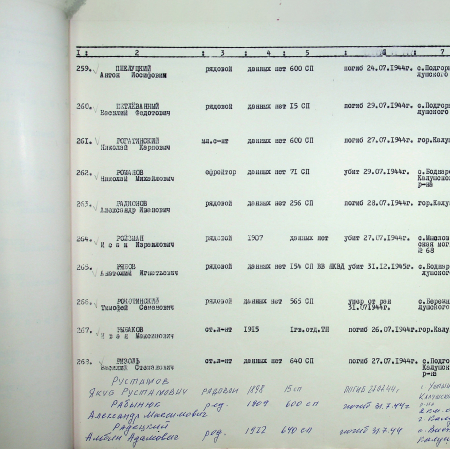 1 : 2 : 3 : 4 : 5 : : 7
259. рядовой данных нет 600 СП погиб 24.07.1944г. с.Подгор
Антон Иосифович лушского
260. ПЕТЛЁВАННЫЙ рядовой данных нет 15 СП погиб 29.07.1944г. с.Подгор
Василий Федотович лушского
261. РОГАТИНСКИЙ мл.с-нт данных нет 600 СП погиб 27.07.1944г. гор.Калу
Николай Карпович
262. РОМАНОВ ефрейтор данных нет 71 СП убит 29.07.1944г. с.Боднар
Николай Михайлович Калушског
р-на
263. РАДИОНОВ рядовой данных нет 256 СП погиб 28.07.1944г. гор.Калу
Александр Иванович
264. РОЙЗМАН рядовой 1907 данных нет убит 27.07.1944г.
Исаак Израилевич ская мог
№ 68
265. РЯБОВ рядовой данных нет 154 СП ВВ НКВД убит 31.12.1945г. с.Боднар
Анатолий Игнатьевич лушского
266. рядовой данных нет 565 СП умер от ран с.Бережн
Тимофей Семенович 31.071944г. лушского
267. РЫБАКОВ ст.л-нт 1915 1гв.отд.ТП погиб 26.07.1944г. гор.Калу
Иван Максимович
268. ст.л-нт данных нет 640 СП погиб 27.07.1944г. с.Подгор
Василий Степанович Калушског
р-на
РУСТАМОВ
ЯКУБ РУСТАМОВИЧ РЯДОВОЙ 1898 15 СП
РАБЫНЮК ряд. 1909 600 сп погиб 31.7.44г
Александр Максимович
Радецкий ряд. 1922 640 СП погиб 31.7.44
Альбин Адамович Калуш